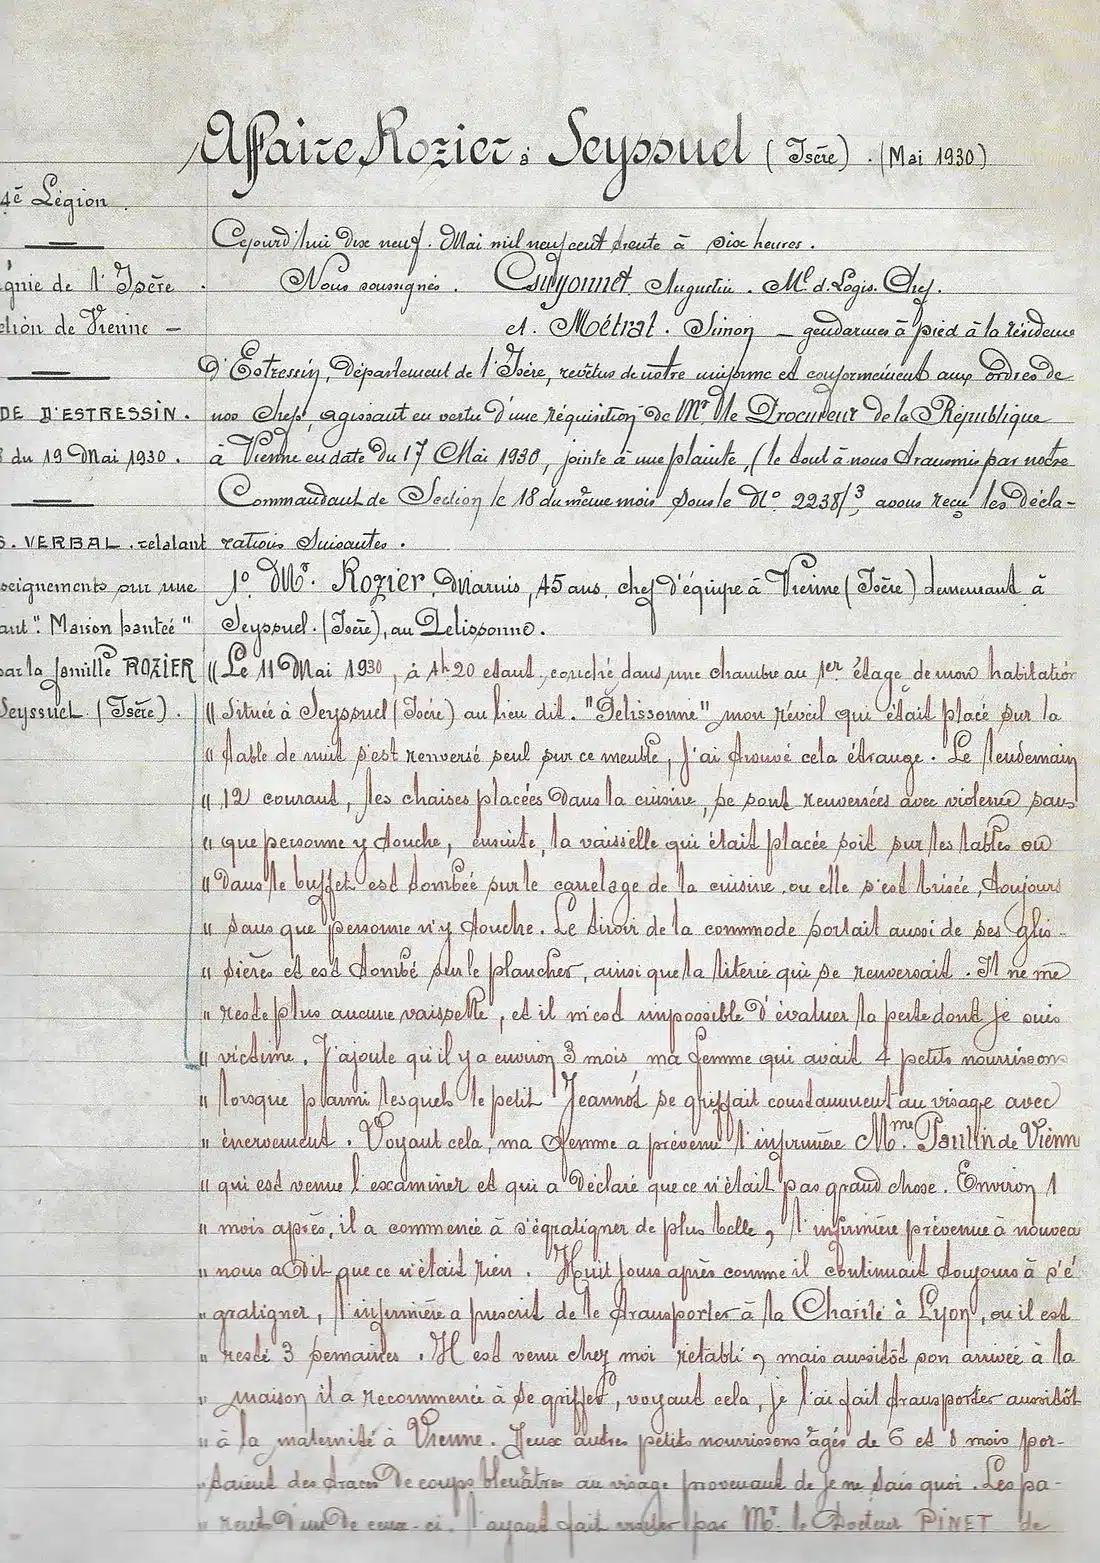 Affaire Rozier à Seyssuel (Isère). (Mai 1930)
4è Légion.
Cejourd'hui dix neuf. Mai mil neuf cent trente à six heures.
gnie de l'Isère.
Nous soussignés. Guyonnet Augustin. Ml. d. Logis. Chef.
ction de Vienne —
et. Métrat. Simon — gendarmes à pied à la résidence
d'Estressin, Département de l'Isère, revêtus de notre uniforme et conformément aux ordres de
DE D'ESTRESSIN.
nos chefs, agissant en vertu d'une réquisition de Mr. le Procureur de la République
du 19 Mai 1930.
à Vienne en date du 17 Mai 1930, jointe à une plainte, (le tout à nous transmis par notre
Commandant de Section le 18 du même mois sous le No. 2238/3 avons reçu les décla-
S. VERBAL. relatant
rations suivantes.
seignements sur une
1o. Mr. Rozier, Marius, 45 ans, chef d'équipe à Vienne (Isère) demeurant à
ant ". Maison hantée "
Seyssuel. (Isère), au Pelissonne.
par la famille ROZIER
"Le 11 Mai 1930, à 4h20 étant, couché dans une chambre au 1er étage de mon habitation
Seyssuel (Isère).
" Située à Seyssuel (Isère) au lieu dit. "Pélissonne" mon réveil qui était placé sur la
" table de nuit s'est renversé seul sur ce meuble, j'ai trouvé cela étrange. Le lendemain
" 12 courant, les chaises placées dans la cuisine, se sont renversées avec violence sans
" que personne y touche, ensuite, la vaisselle qui était placée soit sur les tables ou
" Dans le buffet est tombée sur le carrelage de la cuisine ou elle s'est brisée, toujours
" sans que personne n'y touche. Le tiroir de la commode sortait aussi de ses glis-
" sières et est tombé sur le plancher, ainsi que la literie qui se renversait. Il ne me
" reste plus aucune vaisselle, et il m'est impossible d'évaluer la perte dont je suis
" victime. J'ajoute qu'il y a environ 3 mois, ma femme qui avait 4 petits nourrissons
" lorsque parmi lesquels le petit Jeannot se griffait constamment au visage avec
" énervement. Voyant cela, ma femme a prévenu l'infirmière Mme. Paulin de Vienn
" qui est venue l'examiner et qui a déclaré que ce n'était pas grand chose. Environ 1
" mois après, il a commencé à s'égratigner de plus belle, l'infirmière prévenue à nouvea
" nous a dit que ce n'était rien. Huit jours après comme il continuait toujours à s'é
" gratigner, l'infirmière a prescrit de le transporter à la Charité à Lyon, ou il est
" resté 3 semaines. Il est venu chez moi rétabli, mais aussitôt son arrivée à la
" maison il a recommencé à se griffer, voyant cela, je l'ai fait transporter aussitôt
" à la maternité à Vienne. Deux autres petits nourrissons âgés de 6 et 8 mois por-
" taient des traces de coups bleuâtres au visage provenant de je ne sais quoi. Les pa-
" rents d'un de ceux-ci. l'ayant fait visiter par Mr. le Docteur PINET de